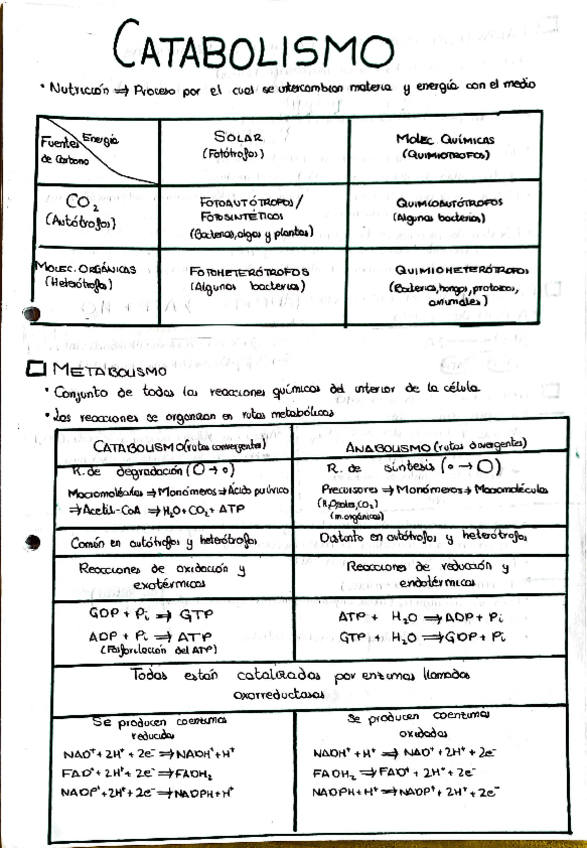 CATABOLISMO
• Nutrición ⇒ Proceso por el cual se intercambian materia y energía con el medio
Energía
Fuentes de Carbono
SOLAR
(Fotótrofos)
MOLEC. QUÍMICAS
(QUIMIOTROFOS)
CO₂
(Autótrofos)
FOTOAUTÓTROFOS /
FOTOSINTÉTICOS
(Bacterias, algas y plantas)
QUIMIOAUTÓTROFOS
(Algunas bacterias)
MOLEC. ORGÁNICAS
(Heterótrofos)
FOTOHETERÓTROFOS
(Algunas bacterias)
QUIMIOHETERÓTROFOS
(Bacterias, hongos, protozoos,
animales)
METABOLISMO
• Conjunto de todas las reacciones químicas del interior de la célula
• Las reacciones se organizan en rutas metabólicas
CATABOLISMO (rutas convergentes)
ANABOLISMO (rutas divergentes)
R. de degradación (O → o)
Macromoléculas ⇒ Monómeros ⇒ Ácido pirúvico
⇒ Acetil-CoA ⇒ H₂O + CO₂ + ATP
R. de síntesis (o → O)
Precursores ⇒ Monómeros ⇒ Macromolécula
(H₂O, sales, CO₂)
(m. orgánicas)
Común en autótrofos y heterótrofos
Distinto en autótrofos y heterótrofos
Reacciones de oxidación y
exotérmicas
Reacciones de reducción y
endotérmicas
GDP + Pi ⇒ GTP
ADP + Pi ⇒ ATP
(Fosforilación del ATP)
ATP + H₂O ⇒ ADP + Pi
GTP + H₂O ⇒ GDP + Pi
Todas están catalizadas por enzimas llamadas
oxorreductasas
Se producen coenzimas
reducidas
NAD⁺ + 2H⁺ + 2e⁻ ⇒ NADH + H⁺
FAD⁺ + 2H⁺ + 2e⁻ ⇒ FADH₂
NADP⁺ + 2H⁺ + 2e⁻ ⇒ NADPH + H⁺
Se producen coenzimas
oxidadas
NADH⁺ + H⁺ ⇒ NAD⁺ + 2H⁺ + 2e⁻
FADH₂ ⇒ FAD⁺ + 2H⁺ + 2e⁻
NADPH + H⁺ ⇒ NADP⁺ + 2H⁺ + 2e⁻